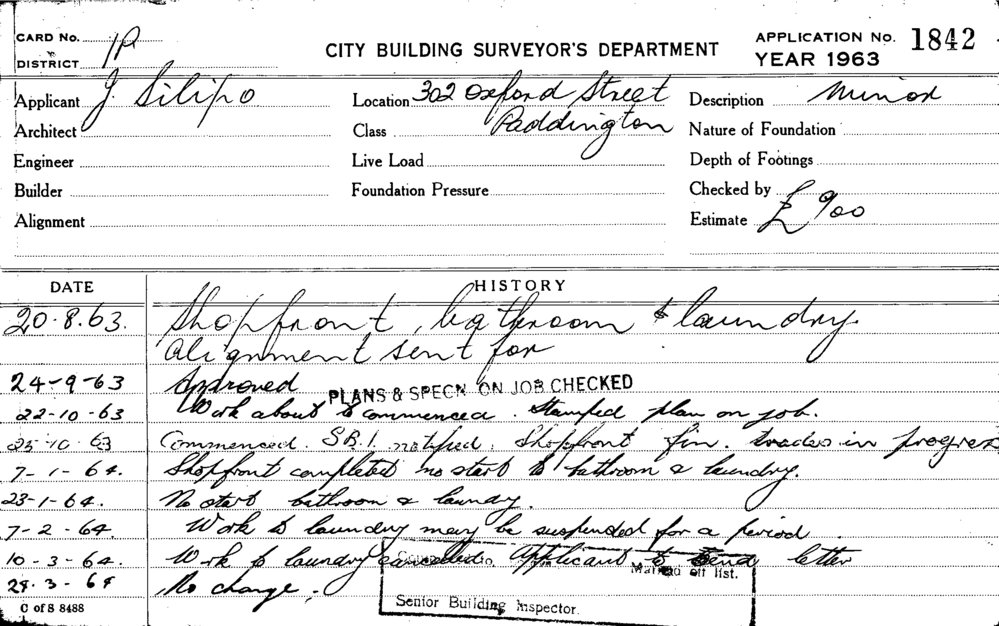 CARD No. 1P
DISTRICT
CITY BUILDING SURVEYOR'S DEPARTMENT
APPLICATION No. 1842
YEAR 1963
Applicant J. Silipo
Location 302 Oxford Street
Paddington
Description Minor
Architect
Class
Nature of Foundation
Engineer
Live Load
Depth of Footings
Builder
Foundation Pressure
Checked by
Alignment
Estimate £900
DATE HISTORY
20.8.63. Shopfront, bathroom & laundry.
Alignment sent for
24-9-63 Approved PLANS & SPECN ON JOB CHECKED
22-10-63 Work about to commenced. Stamped plan on job.
25 10 63 Commenced. S.B.I. notified. Shopfront fin. trades in progress
7-1-64. Shopfront completed no start to bathroom & laundry.
23-1-64. No start bathroom & laundry.
7-2-64. Work to laundry may be suspended for a period.
10-3-64. Work to laundry cancelled. Applicant to send letter
Marked off list.
24.3-64 No change.
Senior Building Inspector.
C of S 8488